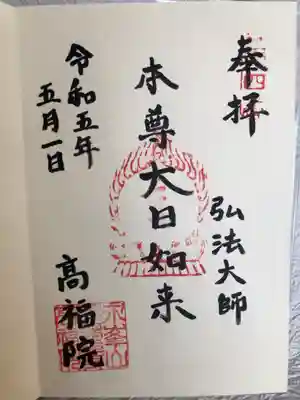 奉拝
弘法大師
本尊大日如来
令和五年
五月一日
高福院